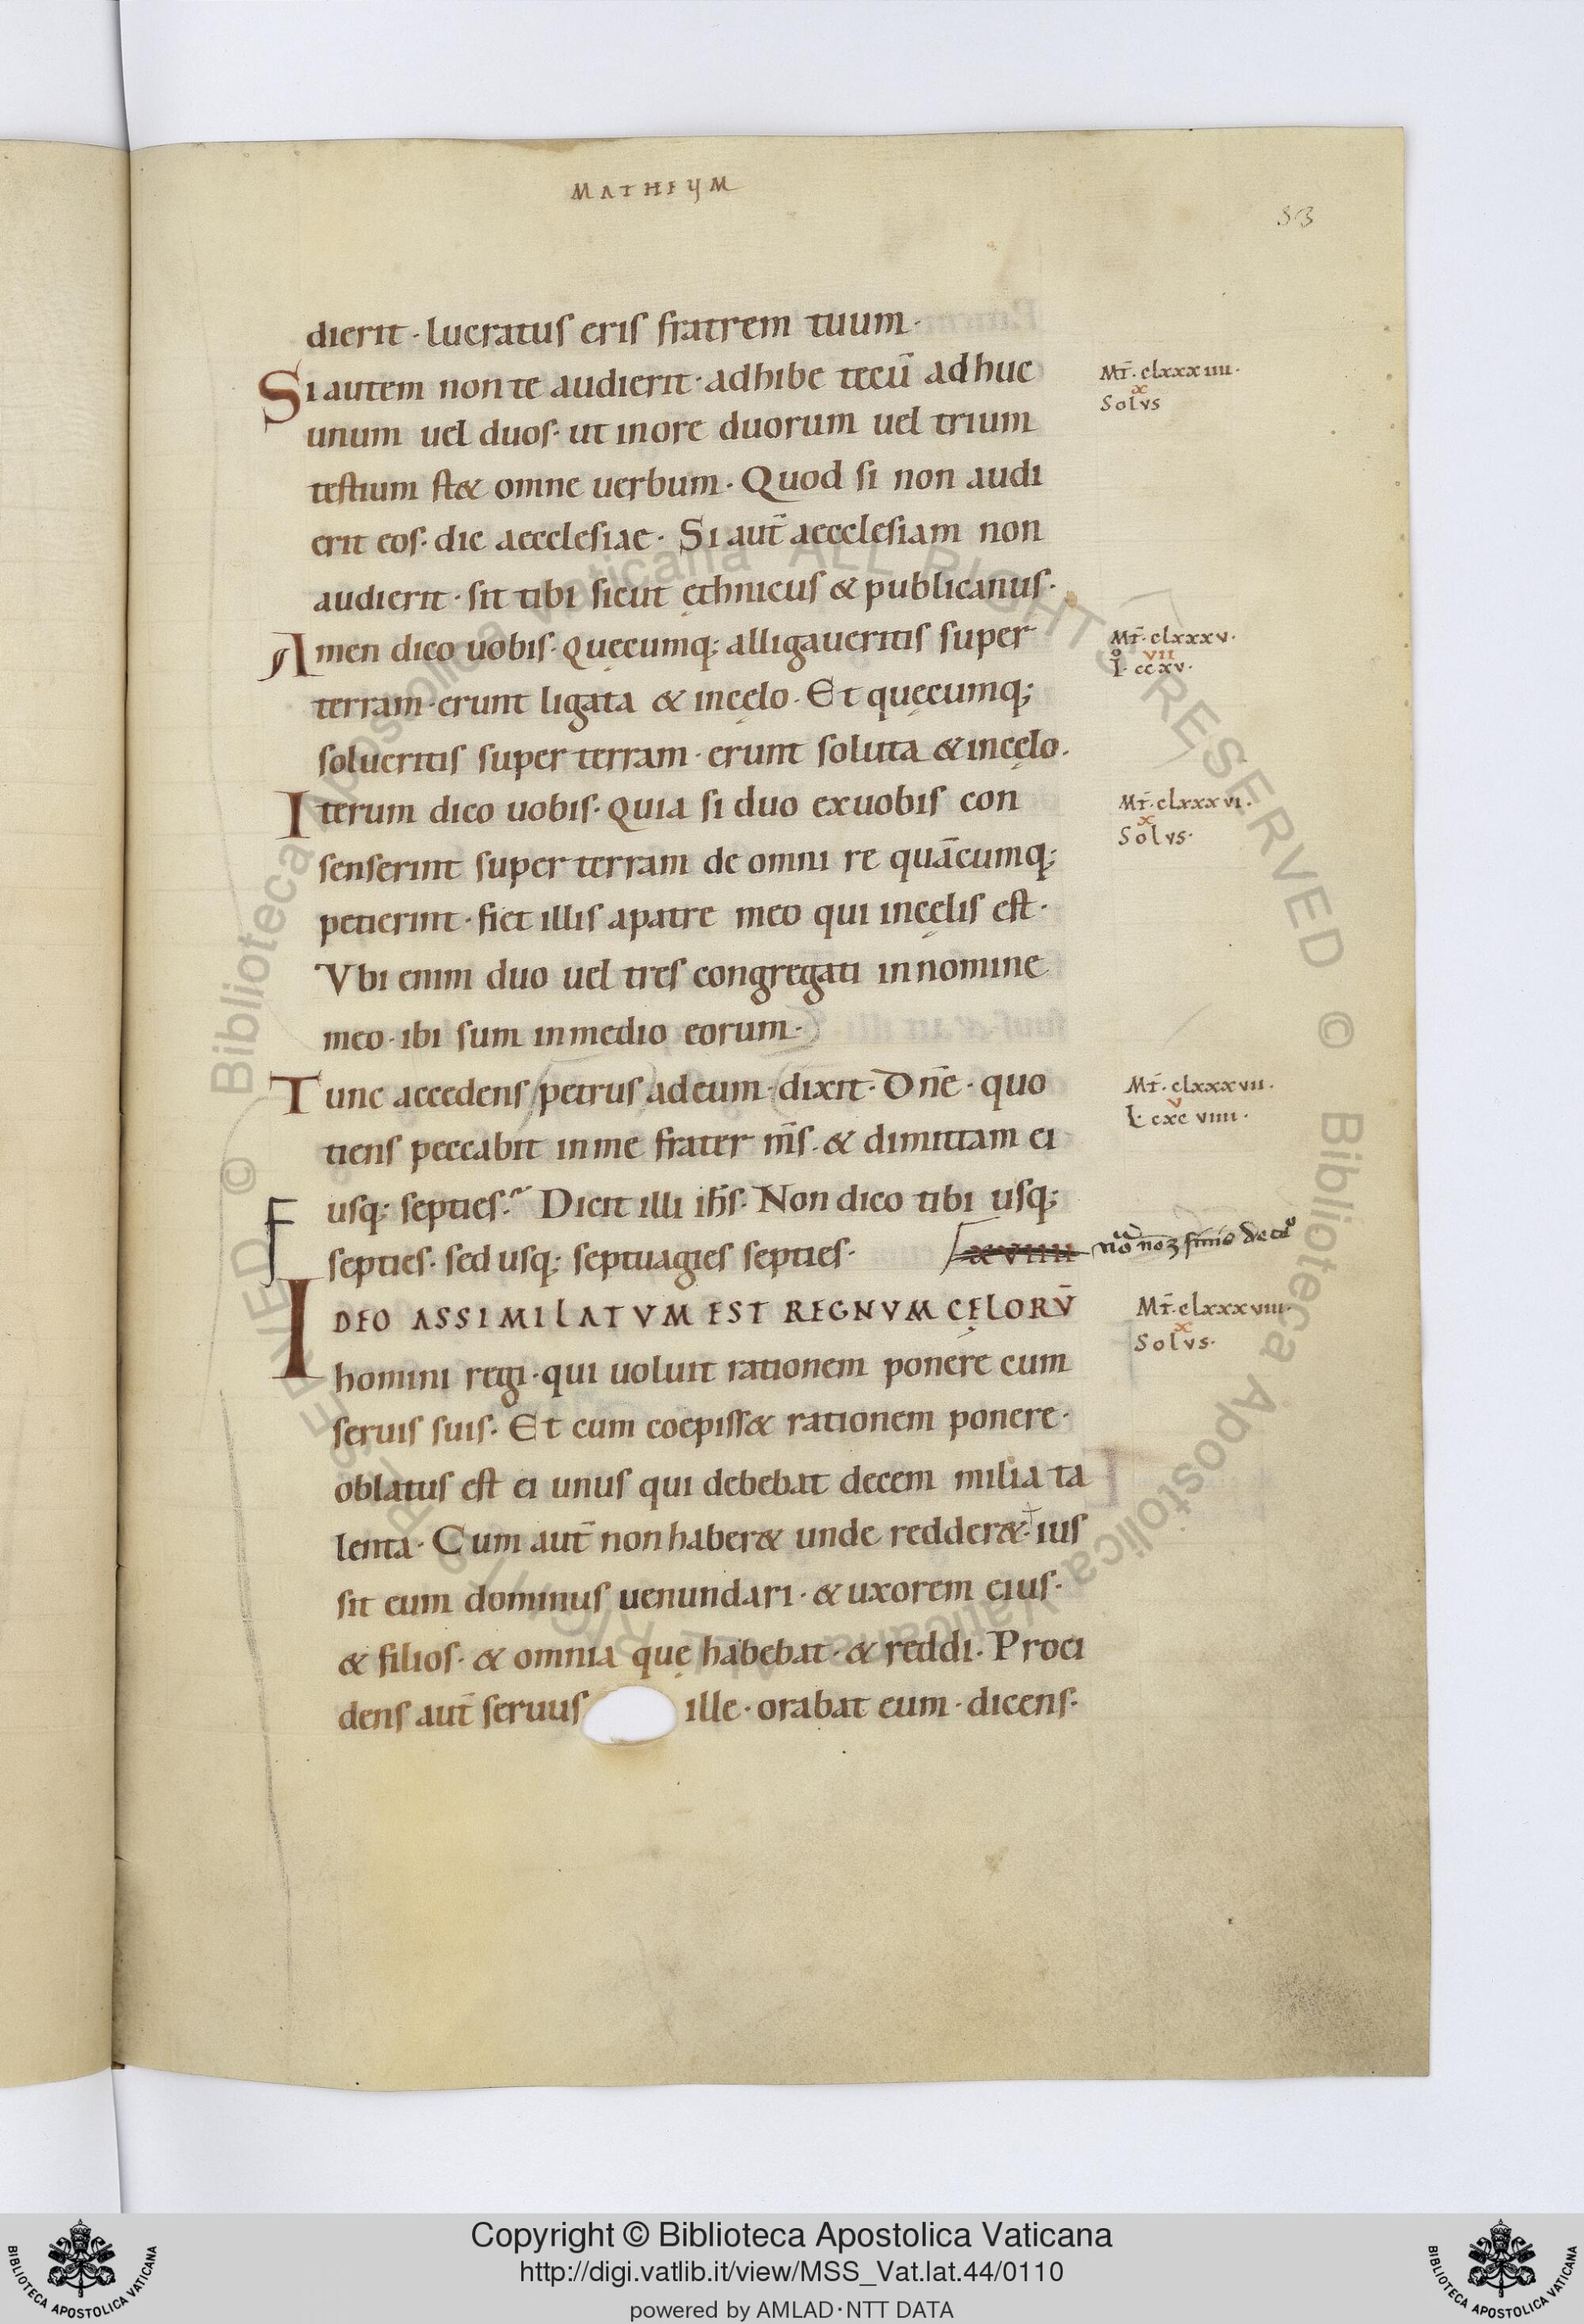 MATHEUM
53
dierit · lucratus eris fratrem tuum ·
Si autem non te audierit · adhibe tecū adhuc
unum uel duos · ut in ore duorum uel trium
testium st& omne uerbum · Quod si non audi
erit eos · dic aecclesiae · Si aut̄ aecclesiam non
audierit · sit tibi sicut ęthnicus & publicanus ·
Amen dico uobis · Quęcumq; alligaueritis super
terram · erunt ligata & in cęlo · Et quęcumq;
solueritis super terram · erunt soluta & in cęlo ·
Iterum dico uobis · Quia si duo ex uobis con
senserint super terram de omni re quācumq;
petierint · fiet illis a patre meo qui in cęlis est ·
Vbi enim duo uel tres congregati in nomine
meo · ibi sum in medio eorum ·
Tunc accedens petrus ad eum · dixit · Dn̄e · quo
tiens peccabit in me frater m̄s · & dimittam ei
usq; septies · Dicit illi ih̄s · Non dico tibi usq;
F
septies · sed usq; septuagies septies ·
xviiii
IDEO ASSIMILATVM EST REGNVM CĘLORV̄
homini regi · qui uoluit rationem ponere cum
seruis suis · Et cum coepiss& rationem ponere ·
oblatus est ei unus qui debebat decem milia ta
lenta · Cum aut̄ non haber& unde redder& · ius
sit eum dominus uenundari · & uxorem eius ·
& filios · & omnia quę habebat · & reddi · Proci
dens aut̄ seruus ille · orabat eum · dicens ·
MT̄ · clxxxiiii ·
x
Solvs
MT̄ · clxxxv ·
vii
I · ccxv ·
MT̄ · clxxxvi ·
x
Solvs ·
MT̄ · clxxxvii ·
v
L · cxcviiii ·
MT̄ · clxxxviii ·
x
Solvs ·
© Biblioteca Apostolica Vaticana ALL RIGHTS RESERVED © Biblioteca Apostolica Vaticana ALL RIGHTS RESERVED
Copyright © Biblioteca Apostolica Vaticana
http://digi.vatlib.it/view/MSS_Vat.lat.44/0110
powered by AMLAD·NTT DATA
BIBLIOTECA APOSTOLICA VATICANA
BIBLIOTECA APOSTOLICA VATICANA